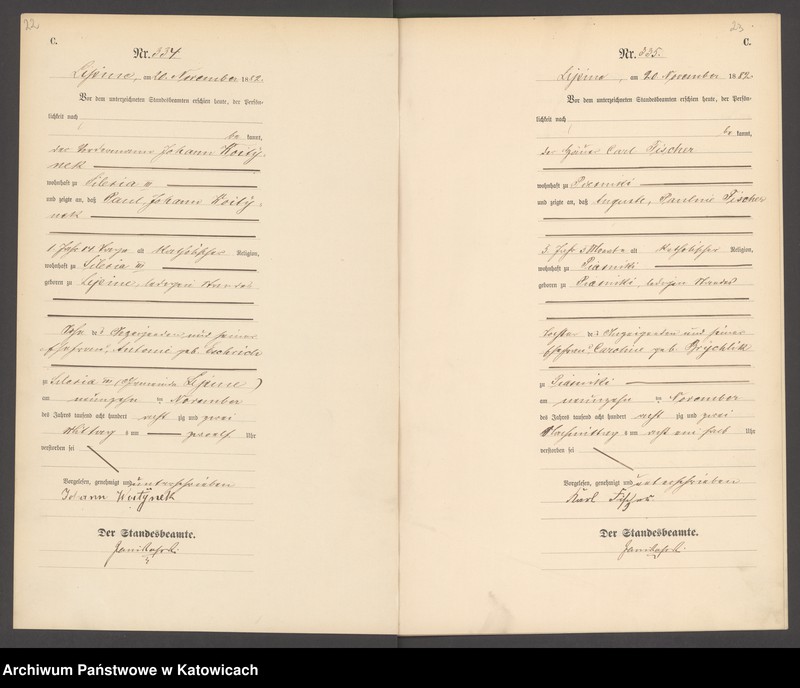 22
C.
Nr. 334
Lipine, am 20 November 1882.
Vor dem unterzeichneten Standesbeamten erschien heute, der Persön-
lichkeit nach
be kannt,
der Johann Woitÿ-
nek
wohnhaft zu Silesia III
und zeigte an, daß Paul, Johann Woitÿ-
nek
1 Jahr 14 Tage alt katholischer Religion,
wohnhaft zu Silesia III
geboren zu Lipine, ledigen Standes
Sohn des Anzeigenden und seiner
Ehefrau, Antonie geb.
zu Silesia III (Gemeinde Lipine)
am neunzehn ten November
des Jahres tausend acht hundert acht zig und zwei
Mittag s um zwoelf Uhr
verstorben sei
Vorgelesen, genehmigt und unterschrieben
Johann Woitÿnek
Der Standesbeamte.
23
C.
Nr. 335.
Lipine, am 20 November 1882.
Vor dem unterzeichneten Standesbeamten erschien heute, der Persön-
lichkeit nach
be kannt,
der Häuer Carl Fischer
wohnhaft zu Piasniki
und zeigte an, daß Auguste, Pauline Fischer
3 Jahr 3 Monate alt katholischer Religion,
wohnhaft zu Piasniki
geboren zu Piasniki, ledigen Standes
Tochter des Anzeigenden und seiner
Ehefrau Caroline geb.
zu Piasniki
am neunzehn ten November
des Jahres tausend acht hundert acht zig und zwei
Nachmittag s um acht ein halb Uhr
verstorben sei
Vorgelesen, genehmigt und unterschrieben
Karl Fischer
Der Standesbeamte.
Archiwum Państwowe w Katowicach